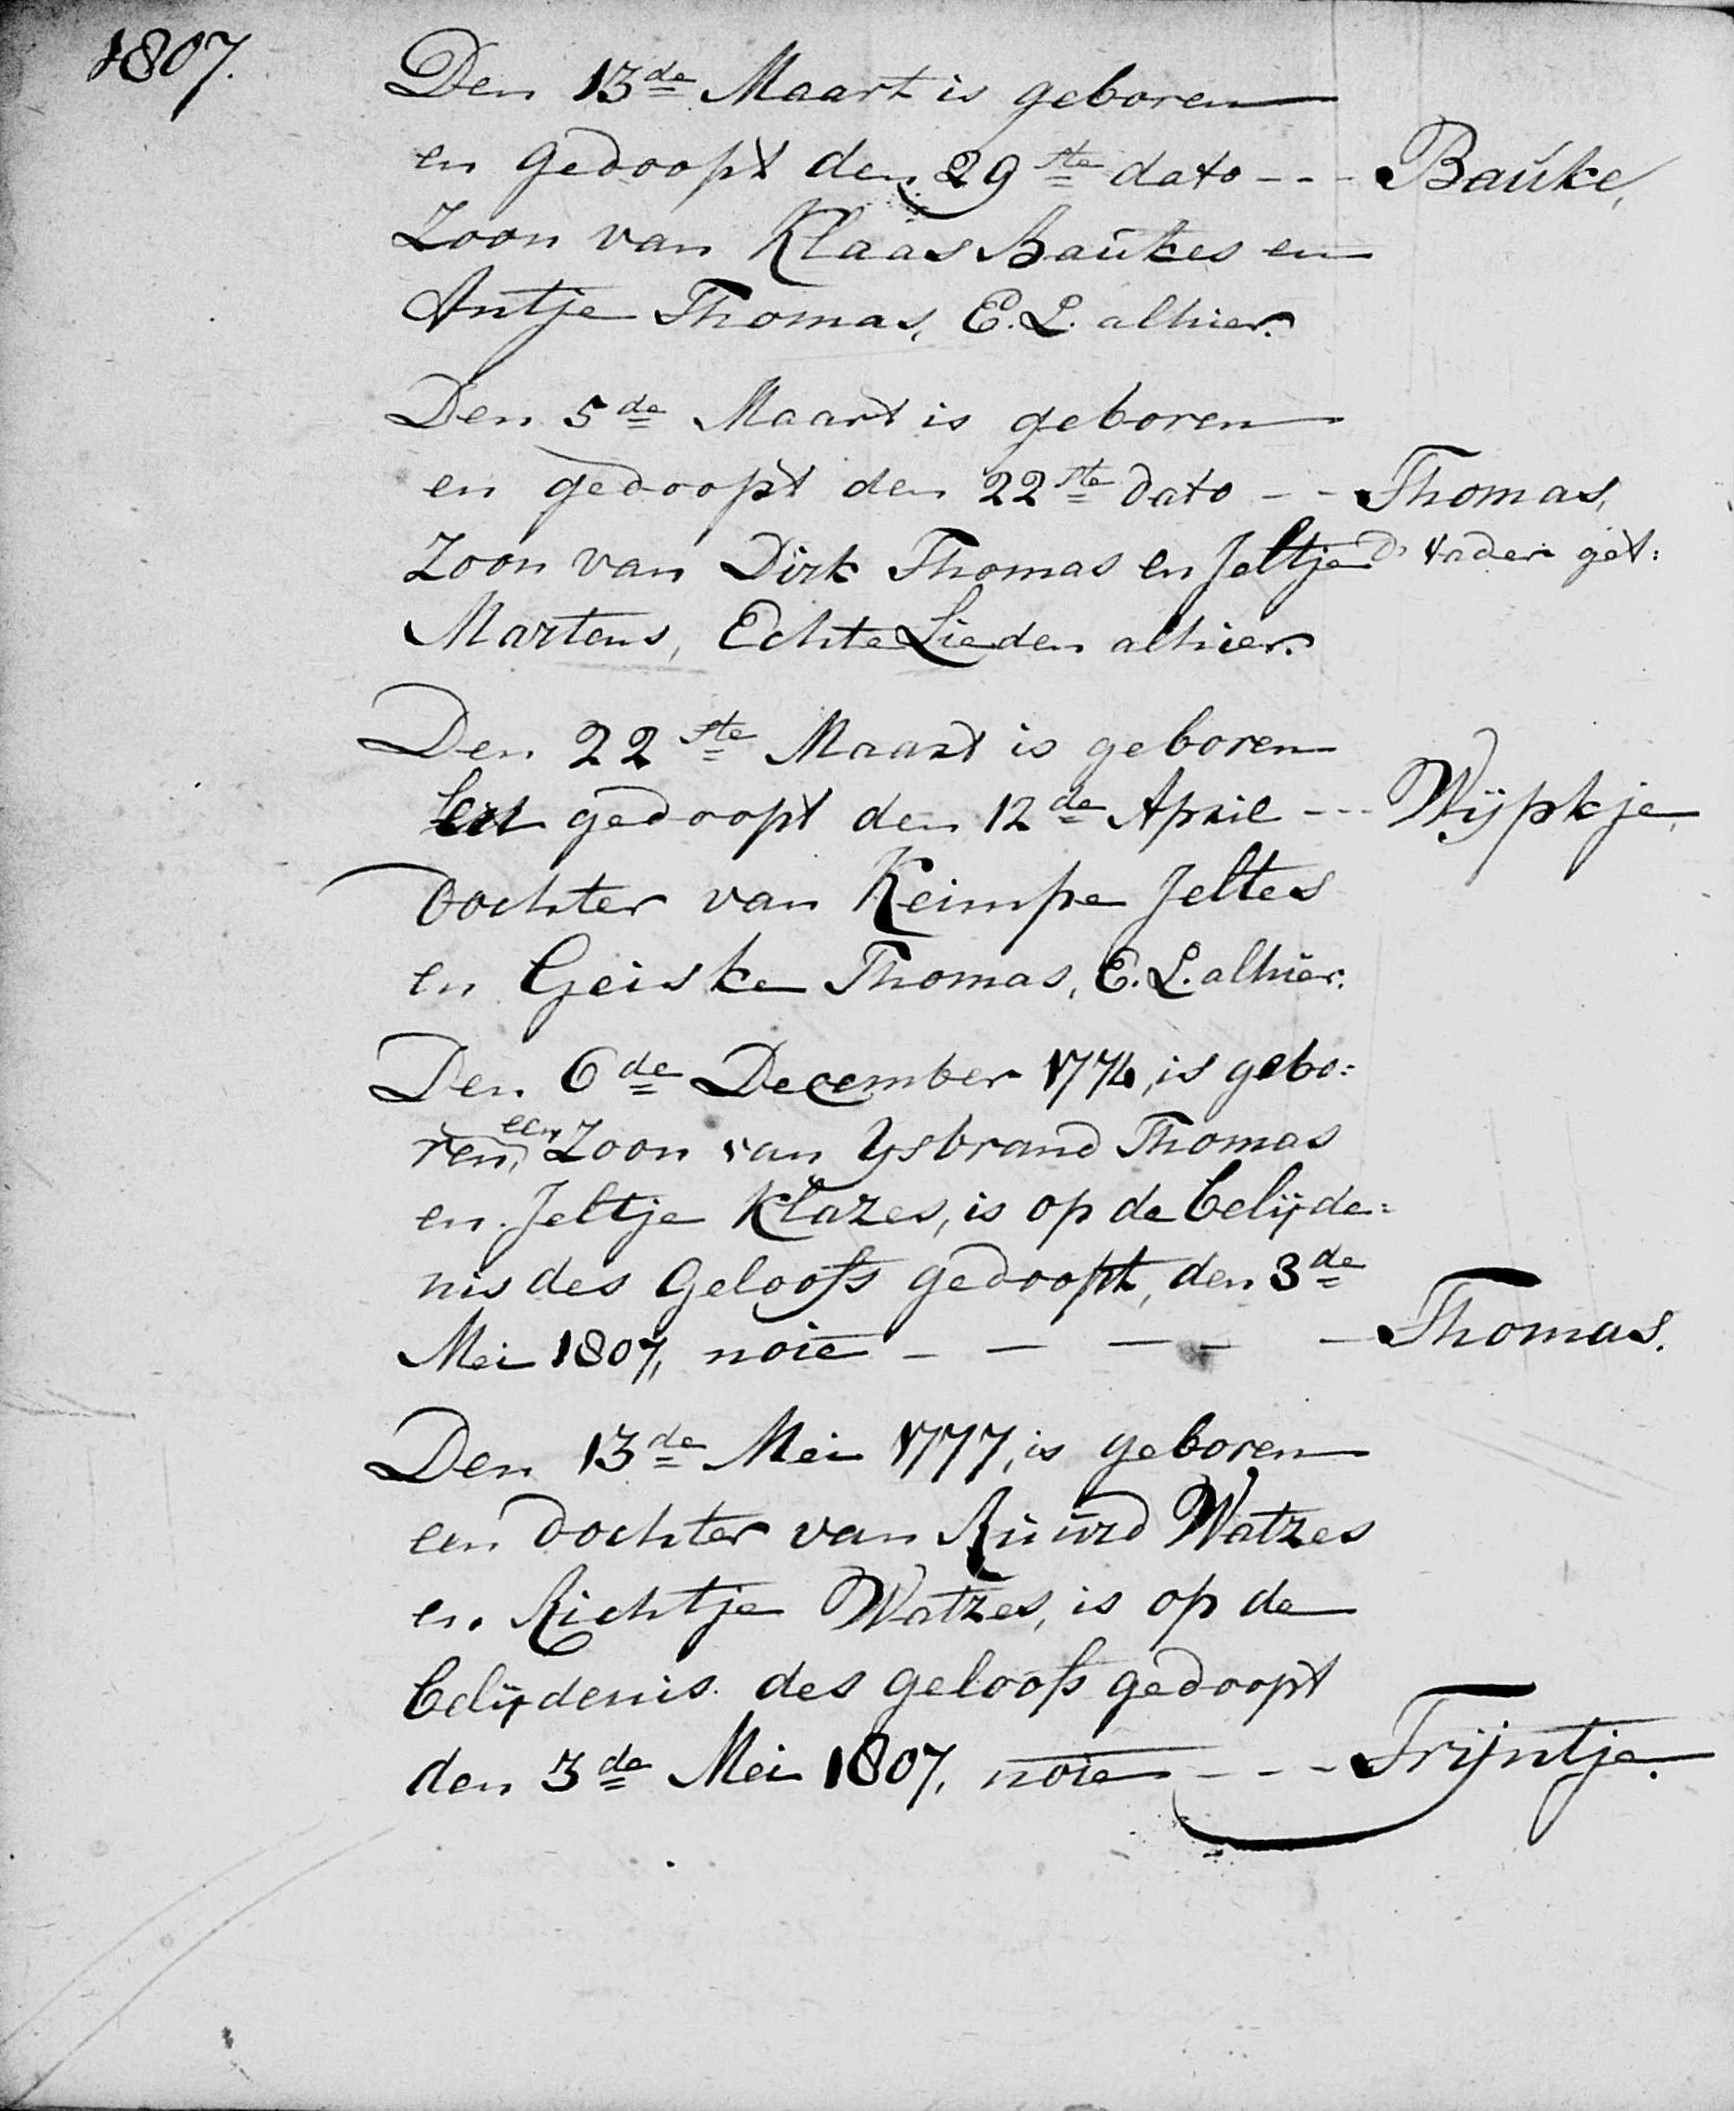 1807.
Den 13de Maart is geboren
en gedoopt den 29ste dato - - - Bauke,
Zoon van Klaas Baukes en
Antje Thomas, E. L. alhier.
Den 5de Maart is geboren
en gedoopt den 22ste dato - - Thomas,
Zoon van Dirk Thomas en Jeltje Ds Vader get:
Martens, Echte Lieden alhier.
Den 22ste Maart is geboren
en gedoopt den 12de April - - - Wijpkje,
Dochter van Keimpe Jeltes
en Geiske Thomas, E. L. alhier.
Den 6de December, is gebo:
ren, een Zoon van Ysbrand Thomas
en Jeltje Klazes, is op de belijde=
nis des Geloofs gedoopt, den 3de
Mei 1807, noie - - - - - Thomas.
Den 13de Mei 1777, is geboren
een Dochter van Ruurd Watzes
en Richtje Watzes, is op de
belijdenis des geloofs gedoopt
den 3de Mei 1807, noie - - - Trijntje.